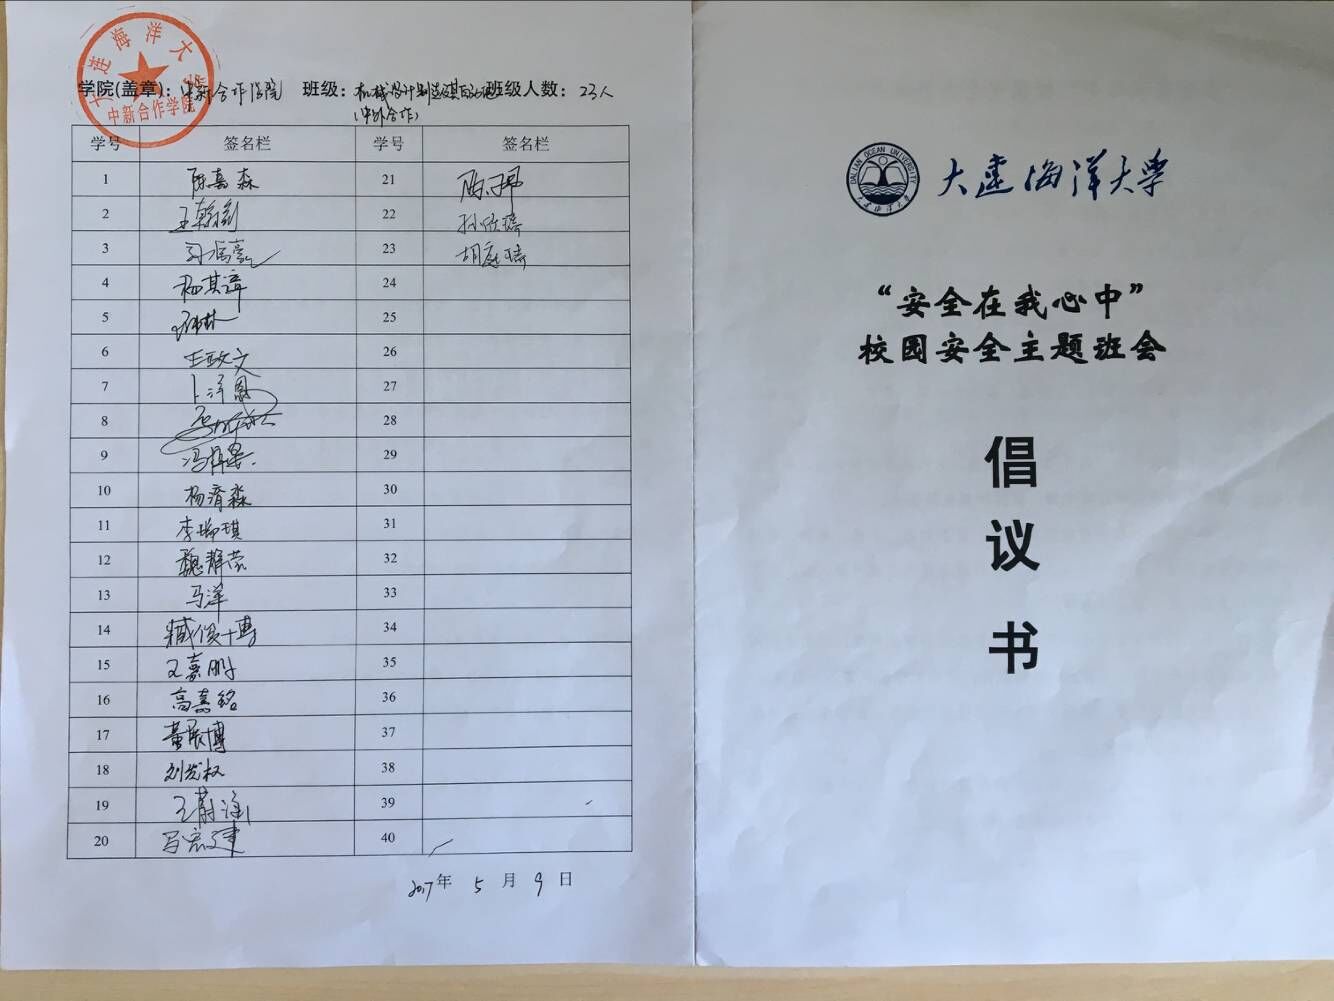 大连海洋大学
中新合作学院
学院(盖章)：中新合作学院 班级：机械设计制造及其自动化 班级人数：23人
(中外合作)
学号 签名栏 学号 签名栏
1 陈嘉森 21
2 王翰剑 22 孙欣琦
3 23 胡庭琦
4 杨其谆 24
5 25
6 王政文 26
7 卜洋恩 27
8 28
9 29
10 杨济淼 30
11 李瑞琪 31
12 魏静芸 32
13 马洋 33
14 臧俊博 34
15 王嘉鹏 35
16 高嘉铭 36
17 黄展博 37
18 刘发权 38
19 王蔚涵 39
20 马宏建 40
2017年 5 月 9 日
DALIAN OCEAN UNIVERSITY
大连海洋大学
大连海洋大学
“安全在我心中”
校园安全主题班会
倡
议
书